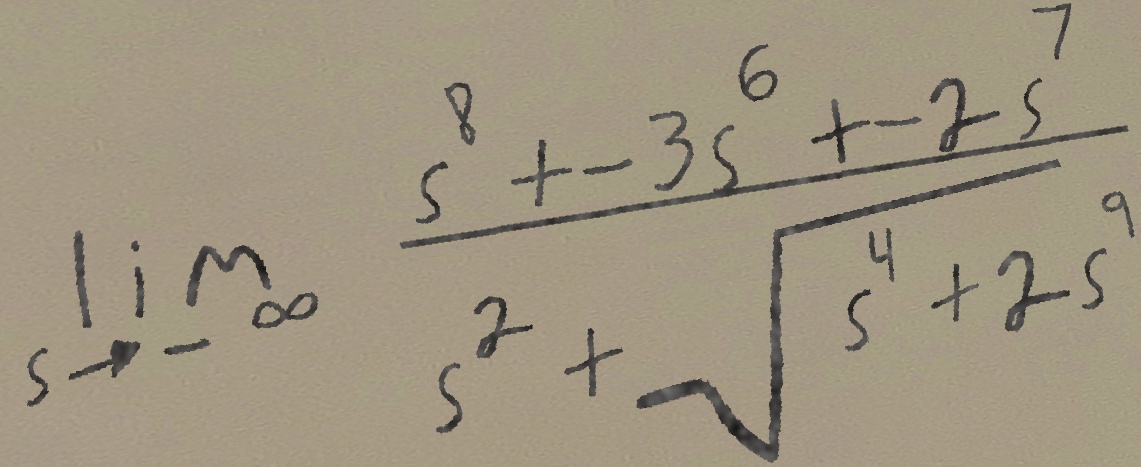 \lim_{s \to -\infty} \frac{s^8 + -3s^6 + -2s^7}{s^2 + \sqrt{s^4 + 2s^9}}